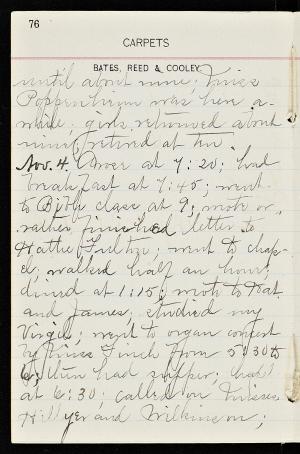 76
CARPETS
BATES, REED & COOLEY
until about nine; Miss
Poppenheim was here a-
while; girls returned about
nine; retired at ten.
Nov. 4. Arose at 7:20; had
breakfast at 7:45; went
to Bible class at 9; wrote or
rather finished letter to
Hattie; went to chap-
el; walked half an hour;
dined at 1:15; wrote to Nat.
and James; studied my
Virgil; went to organ concert
by Miss Finch from 5:30 to
6; then had supper; chapel
at 6:30; called on Misses
Hillyer and Wilkinson;